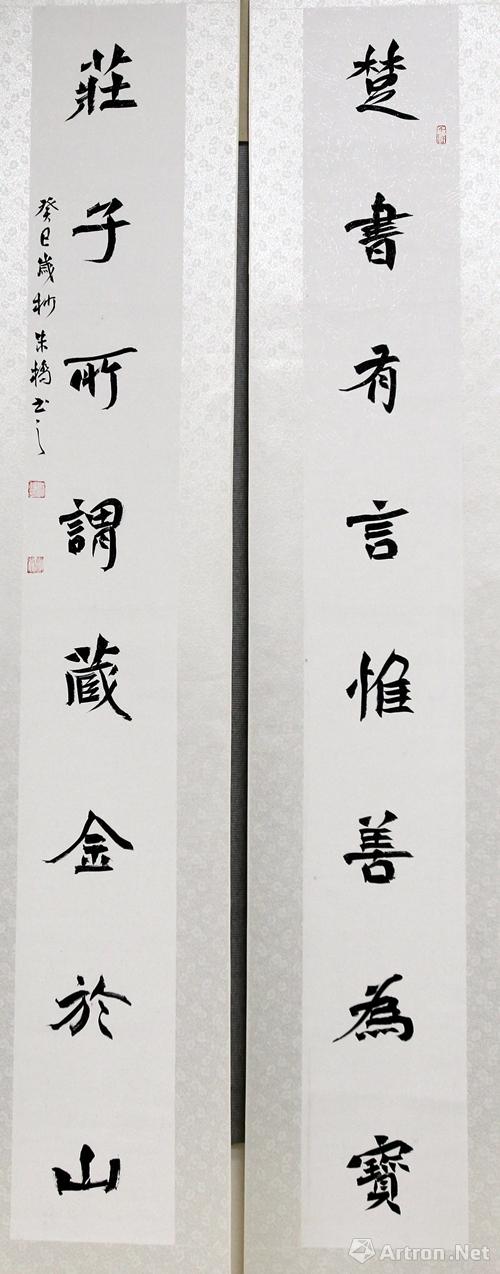 楚書有言惟善為寶
莊子所謂蔵金於山
癸巳歲杪朱橋書之
Artron.Net